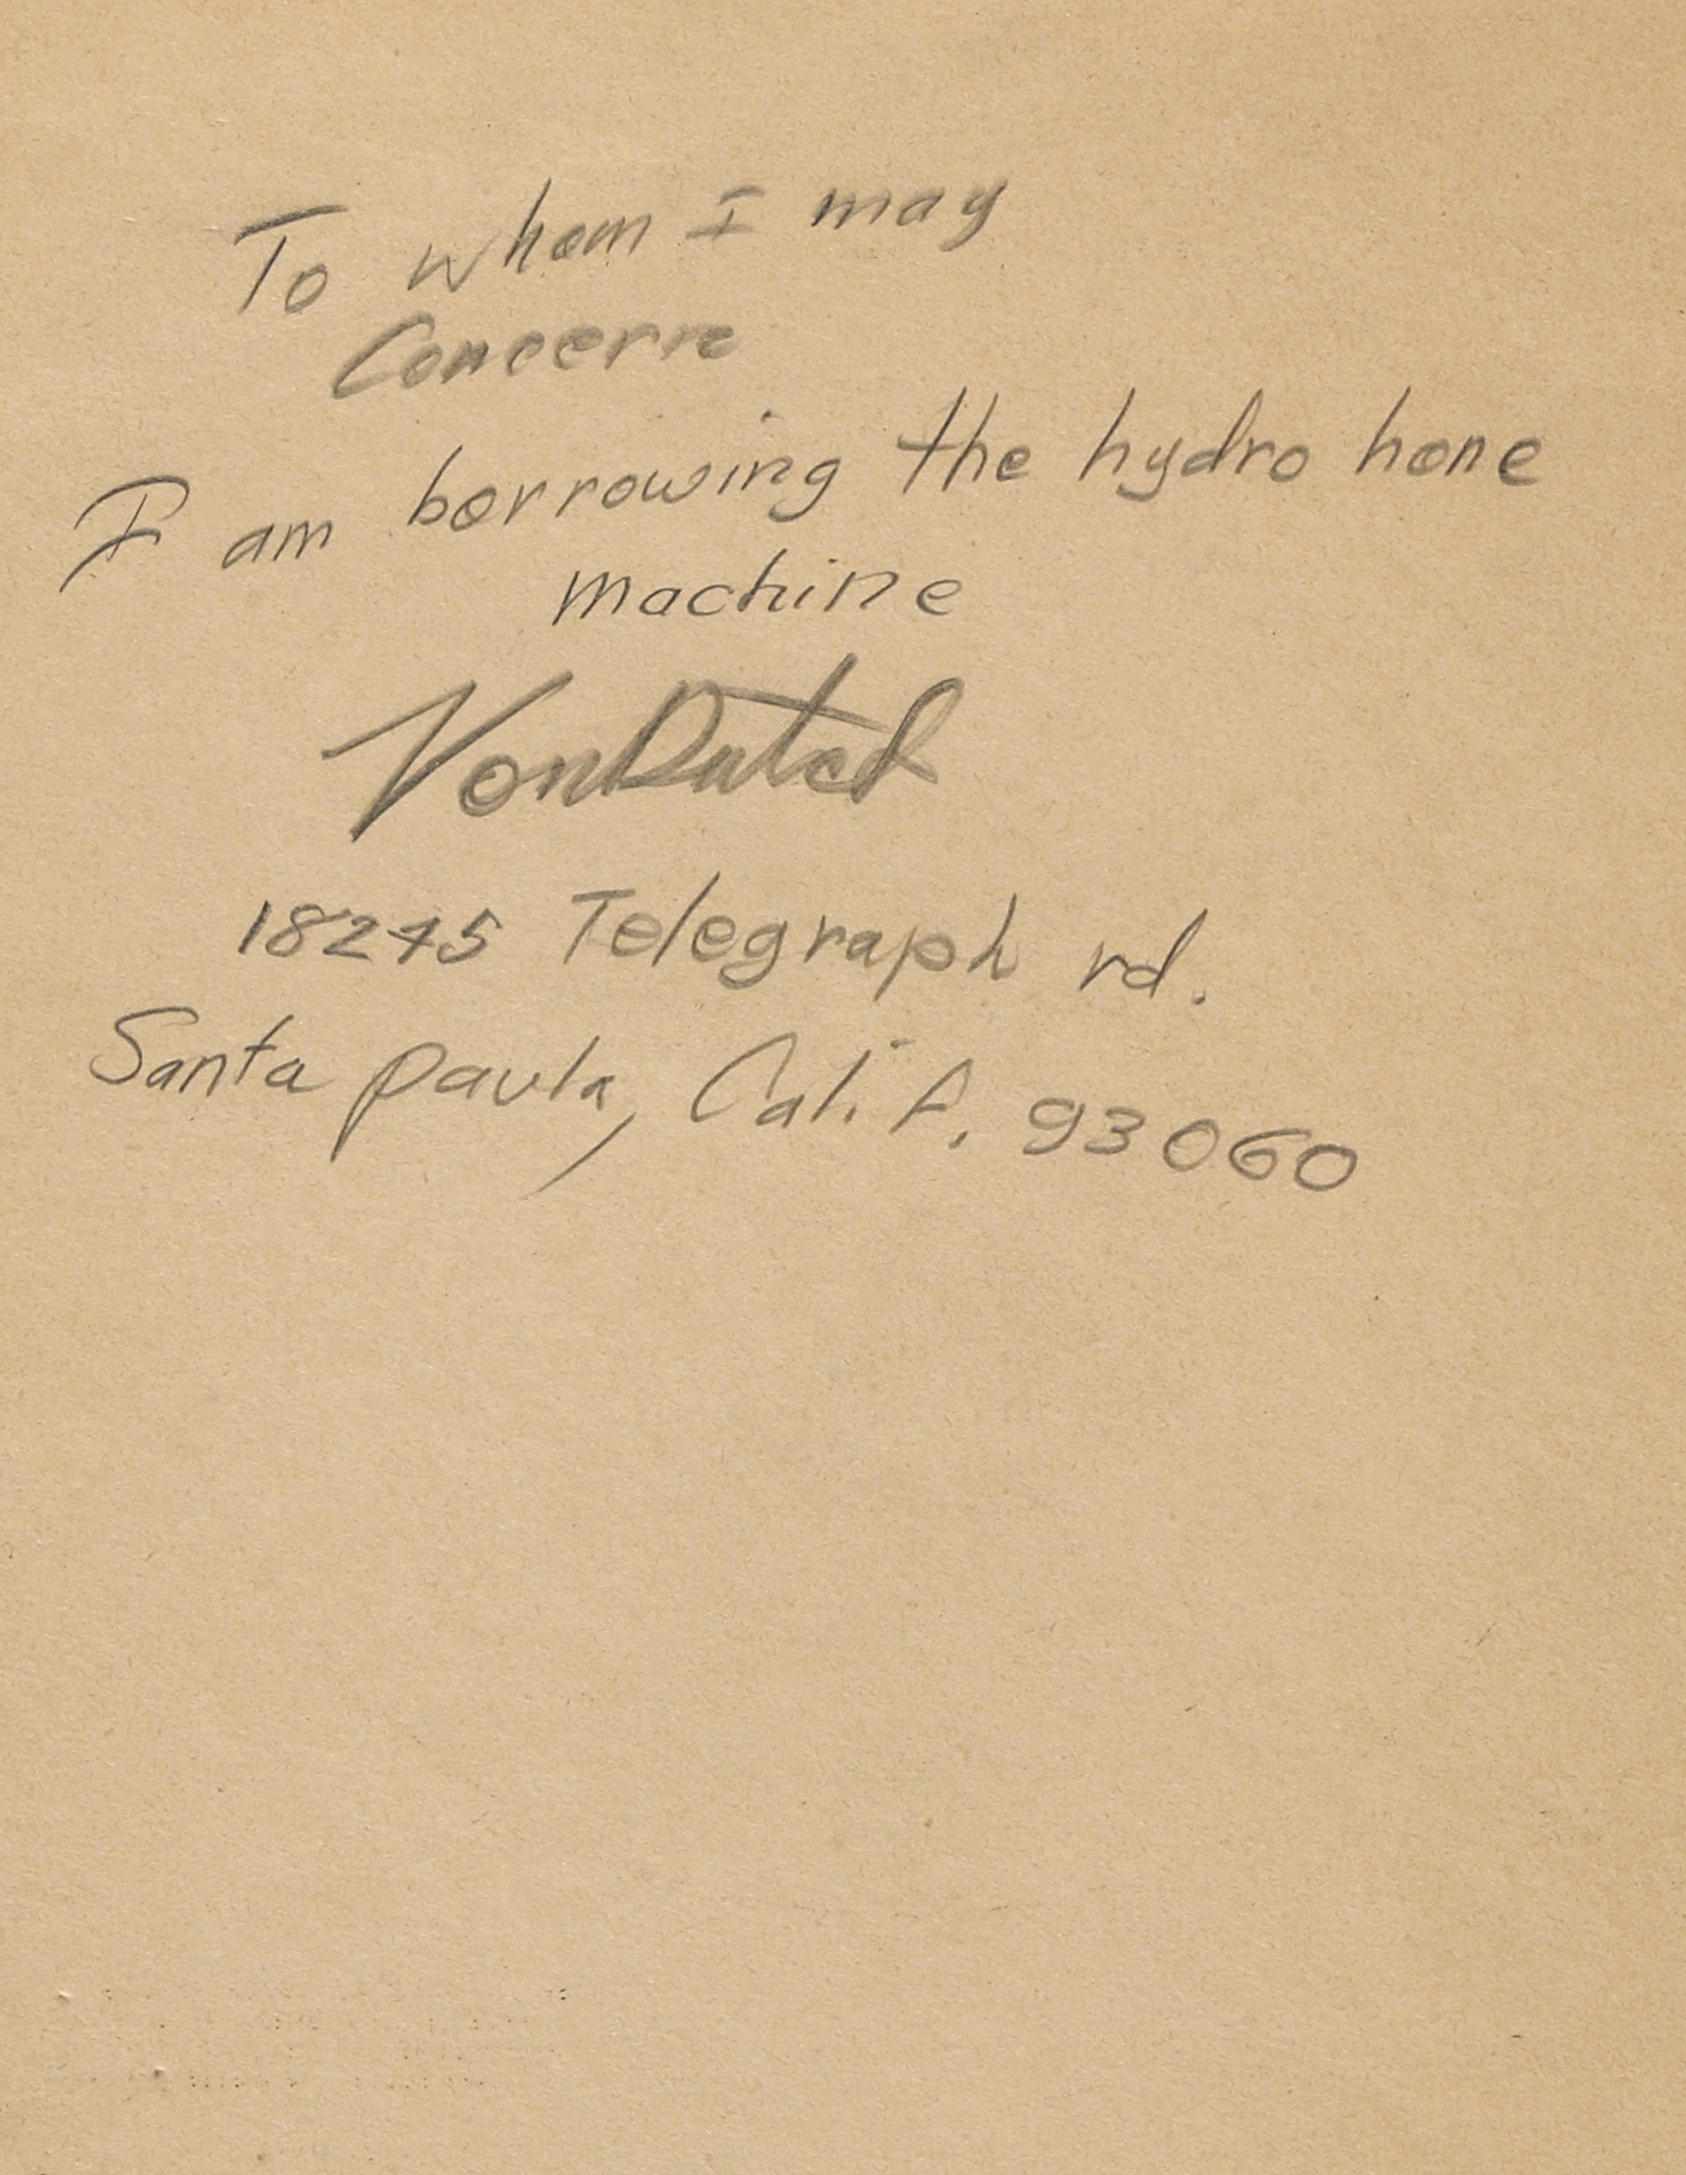 To whom I may
Concern
I am borrowing the hydro hone
machine
VonDutch
18245 Telegraph rd.
Santa paula, Calif. 93060